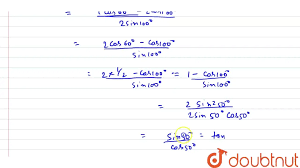 = 1 cos60° - 2cos100° / 2sin100°
= 2cos60° - cos100° / sin100°
= 2x 1/2 - cos100° / sin100° = 1 - cos100° / sin100°
= 2 sin²50° / 2sin 50° cos50°
= sin50° / cos50° = tan
doubtnut